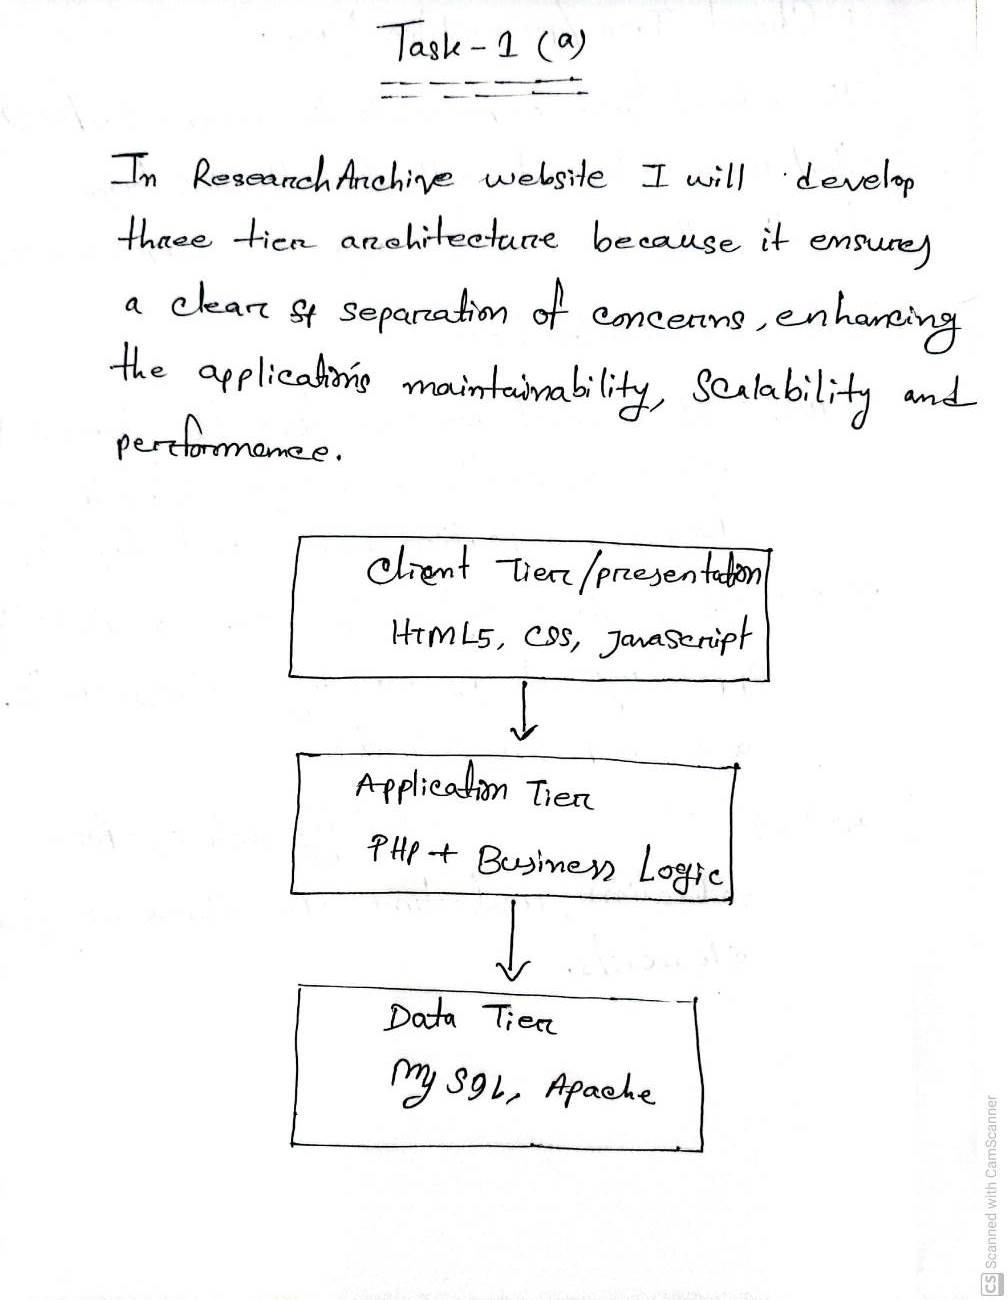 Task-1 (a)
In ResearchArchive website I will develop
three tier architecture because it ensures
a clear separation of concerns, enhancing
the application's maintainability, Scalability and
performance.
Client Tier/presentation
HTML5, CSS, JavaScript
Application Tier
PHP + Business Logic
Data Tier
MySQL, Apache
CS Scanned with CamScanner